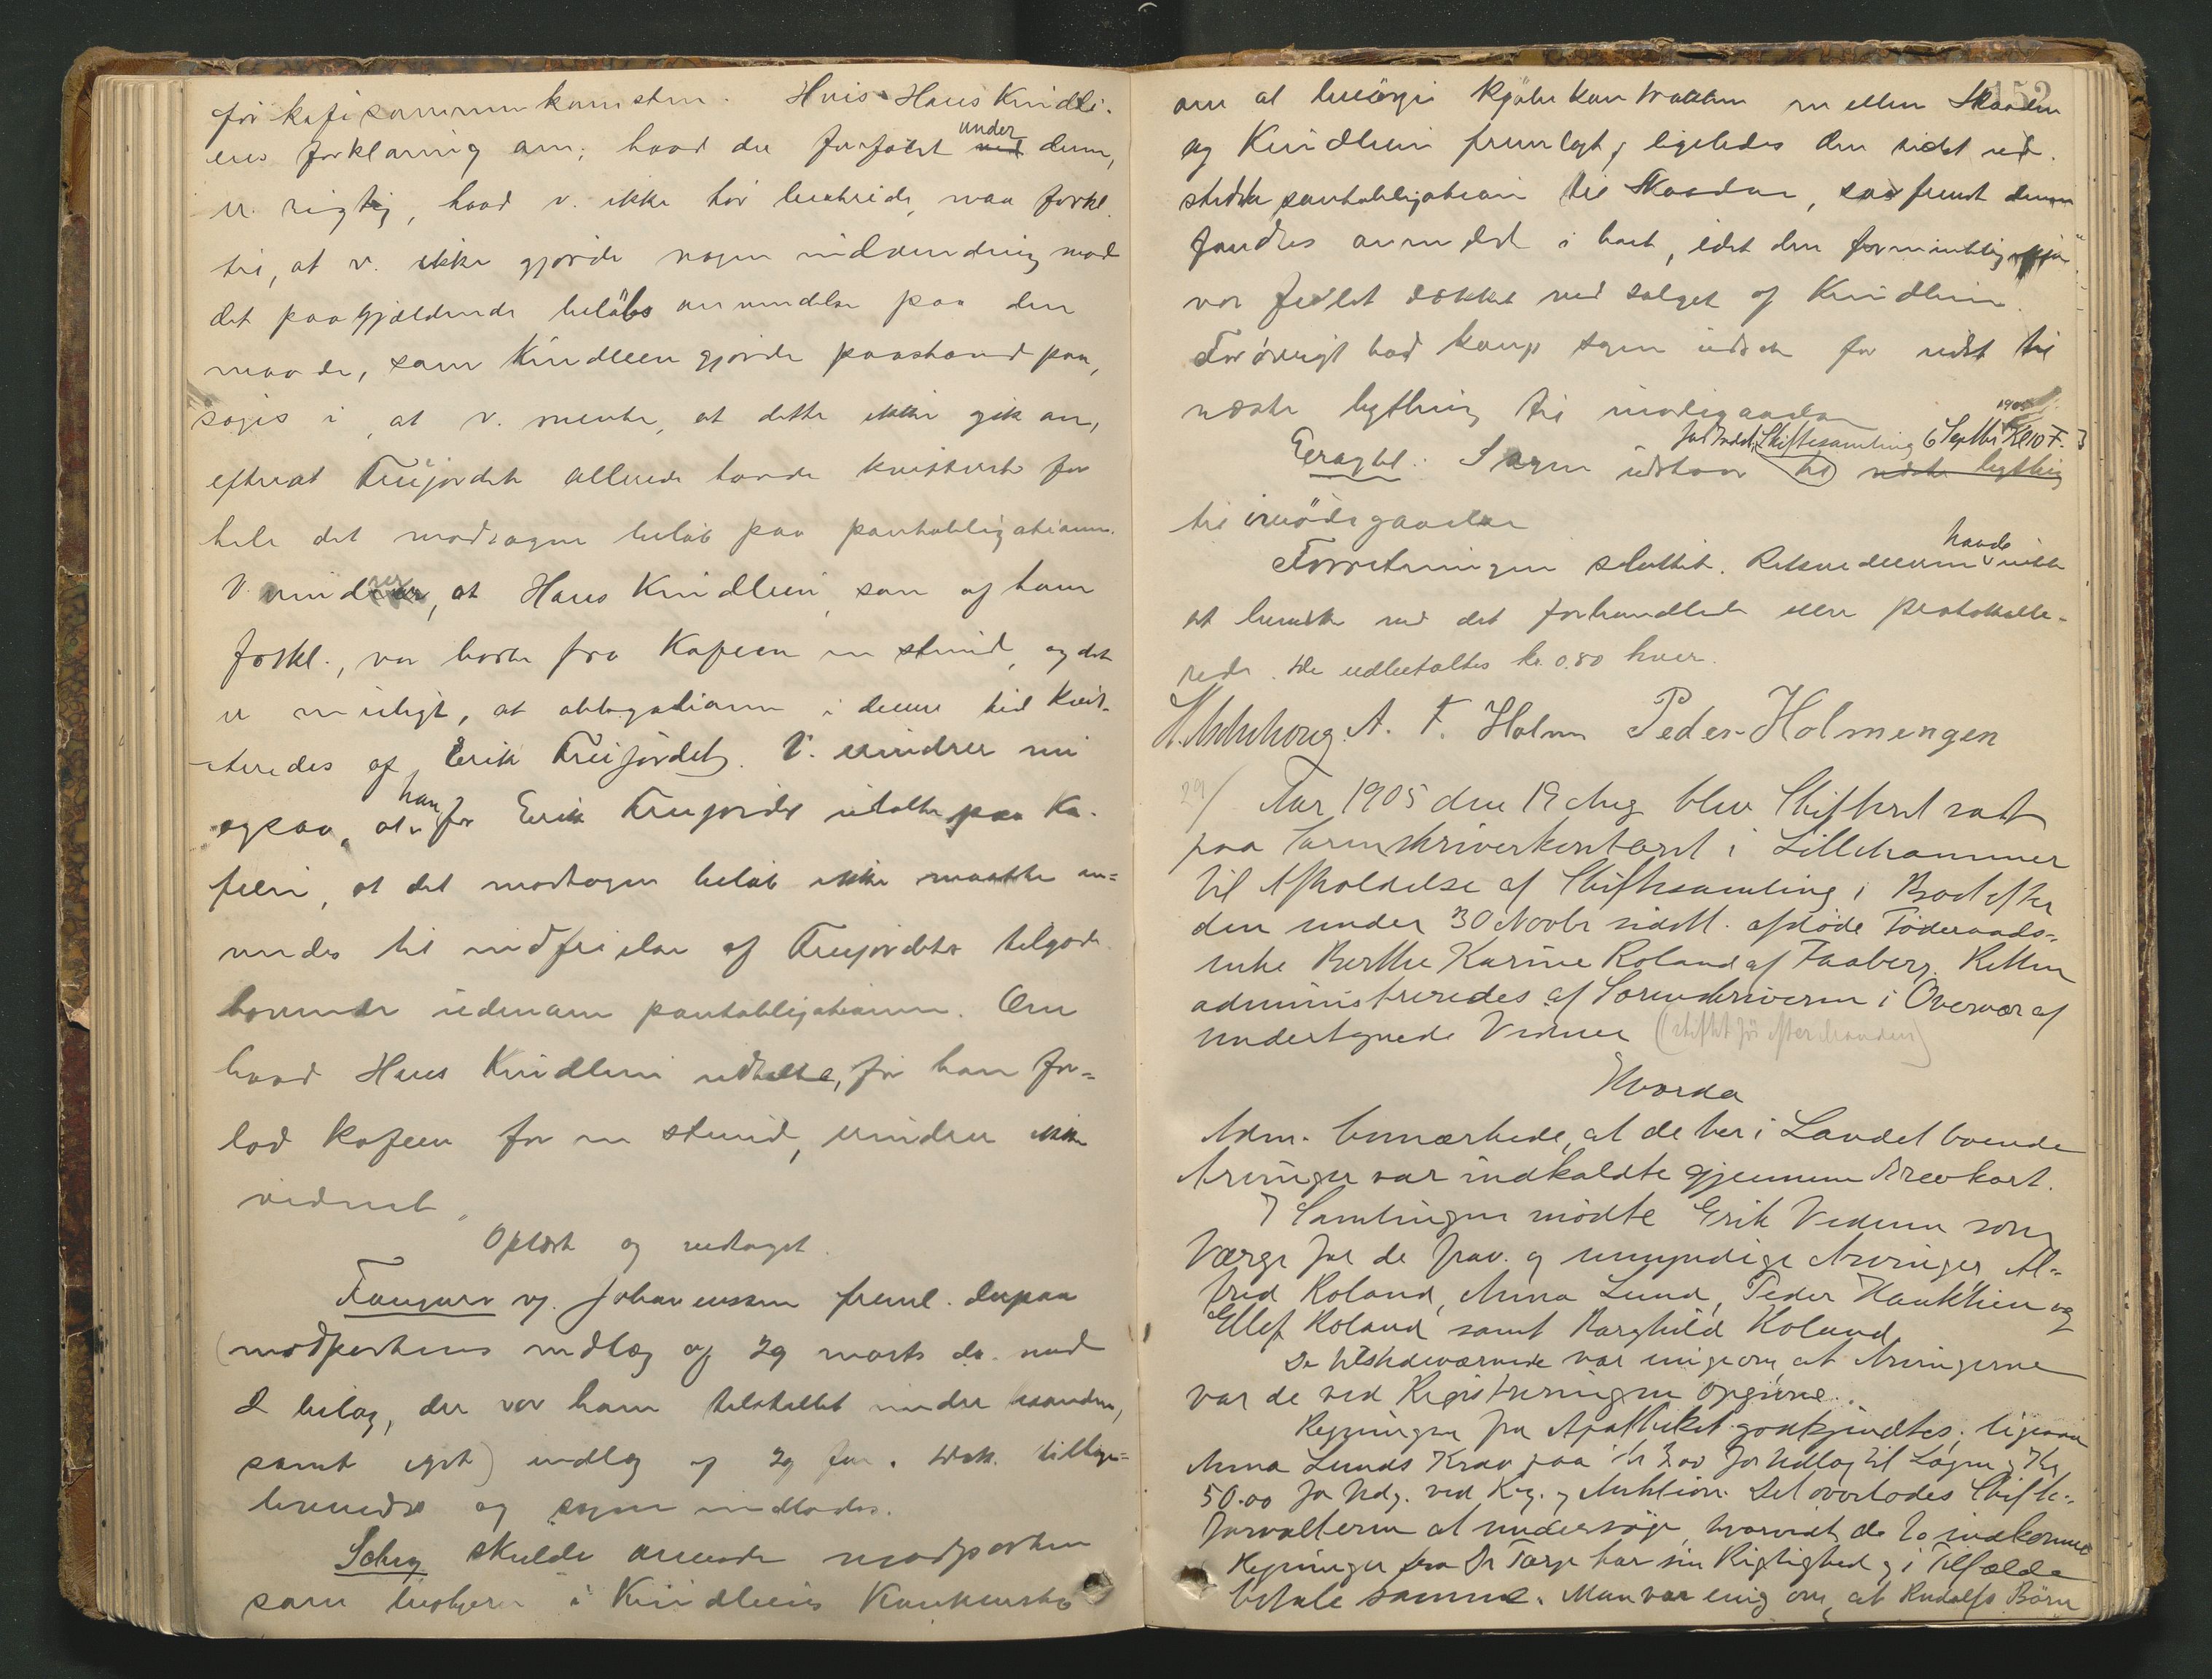 før kafesammenkomsten. Hvis Hans Kindli-
ens forklaring om, hvad der forfaldt under dem,
er rigtig, hvad v. ikke tør bestride, maa forkl.
til, at v. ikke gjorde nogen indvending mod
det paagjældende beløbs anvendelse paa den
maade, som Kindlien gjorde paastand paa,
søges i, at v. mente, at dette ikke gik an,
efterat Treijordet allerede havde kvitteret for
hele det modtagne beløb paa pantobligationen.
V. mindes, at Hans Kindlien, som af ham
forkl., var borte fra Kafeen en stund, og det
er muligt, at obligationen i denne tid kvit-
teredes af Erik Treijordet. V. mindes nu
ogsaa, at han før Erik Treijordet udtalte paa Ka-
feen, at det modtagne beløb ikke maatte an-
vendes til indfrielse af Treijordets tilgode-
havende udenom pantobligationen. Om
hvad Hans Kindlien udtalte, før han for-
lod kafeen for en stund, mindes ikke
vidnet.
Oplæst og vedtaget.
Fougner og Johannessen freml. derpaa
(modpartens indlæg af 29 marts da. med
2 bilag, der var ham tilstillet under haanden,
samt eget) indlæg af 29 jun.
og sagen indlodes.
Schey skulde anmode modparten
som bestyrer i Kindliens Konkursbo
152
om at besørge kjøbekontrakten mellem Skaaden
og Kindlien fremlagt, ligeledes den sidst ud-
stedte pantobligation til Skaaden, saafremt denne
fandtes anmeldt i boet, idet den formentlig
var fuldt dækket ved salget af Kindlien.
Forøvrigt bad komp. sagen udsat for sidst til
næste bygthing til imødegaaelse
Eragtet: Sagen udstaar til Skiftesamling 6 Septbr 1905 Kl 10 F.
næste bygthing
til imødegaaelse
Forretningen sluttet. Retsvidnerne havde intet
at bemærke ved det forhandlede eller protokolle-
rede. De udbetaltes kr. 0.80 hver.
A. F. Holm Peder Holmengen
29/ Aar 1905 den 19 Aug blev Skifteret sat
paa Sorenskriverkontoret i Lillehammer
til Afholdelse af Skiftesamling i Boet efter
den under 30 Novbr sidstl. afdøde Føderaads-
enke Berthe Karine Roland af Faaberg. Retten
administreredes af Sorenskriveren i Overvær af
undertegnede Vidner
Hvorda
Adm. bemærkede, at de her i Landet boende
Arvinger var indkaldte gjennem Brevkort.
I Samlingen mødte Erik Vedum som
Værge for de frav. og umyndige Arvinger Al-
fred Roland, Anna Lund, Peder Hauklien og
Ellef Roland samt Borghild Roland.
De tilstedeværende var enige om, at Arvingerne
var de ved Registreringen opgivne.
Regningen fra Apotheket godkjendtes, ligesaa
Anna Lunds Krav paa Kr 3.00 for Udlæg til Lægen og Kr
50.00 for Udg. ved Reg. og Auktion. Det overlodes Skifte-
forvalteren at undersøge, hvorvidt de to indkomne
Regninger fra Dr Torp har sin Rigtighed og i Tilfælde
betale samme. Man var enig om, at Rudolfs Børn